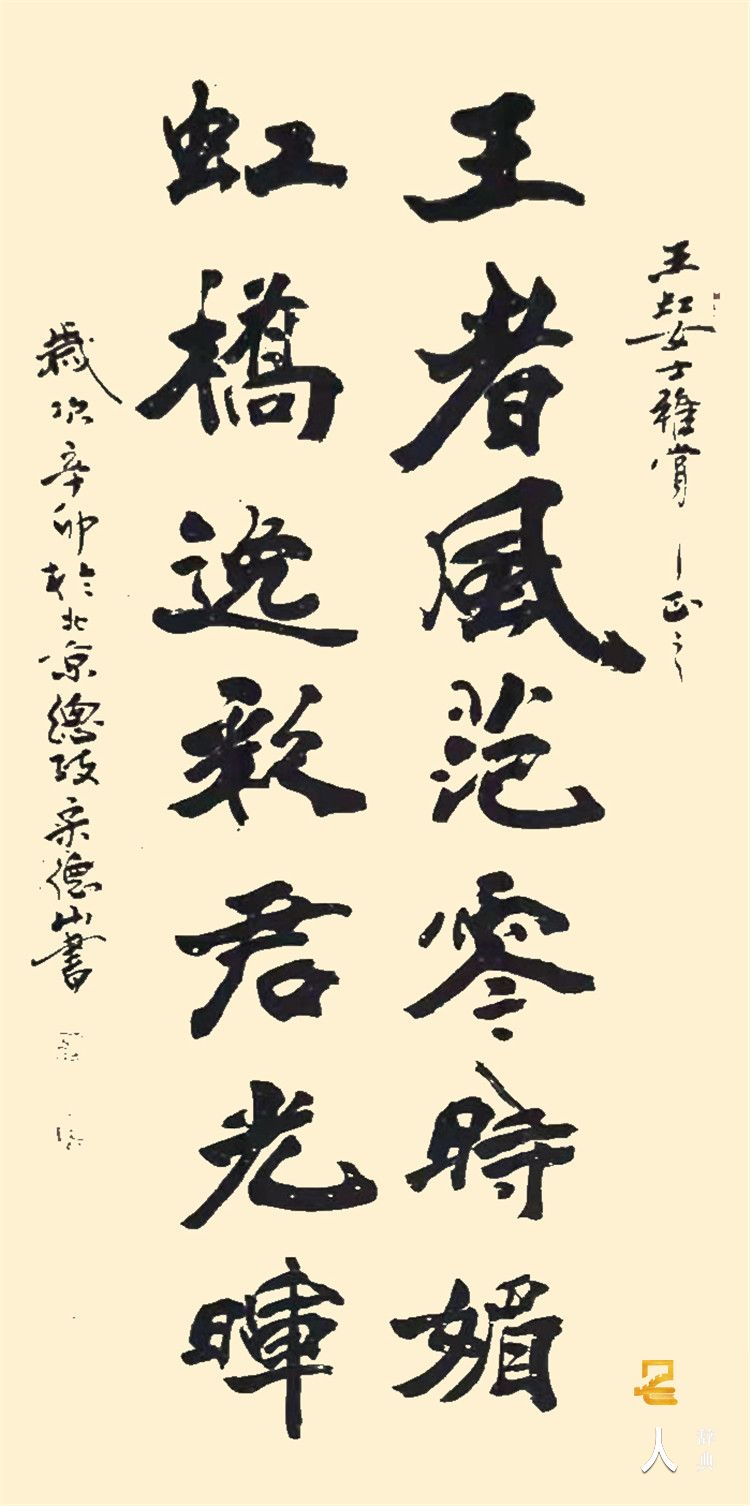 王虹女士雅賞 正之
王者風范零時媚
虹橋逸彩君光暉
歲次辛卯於北京總政德山書
名人
辞典